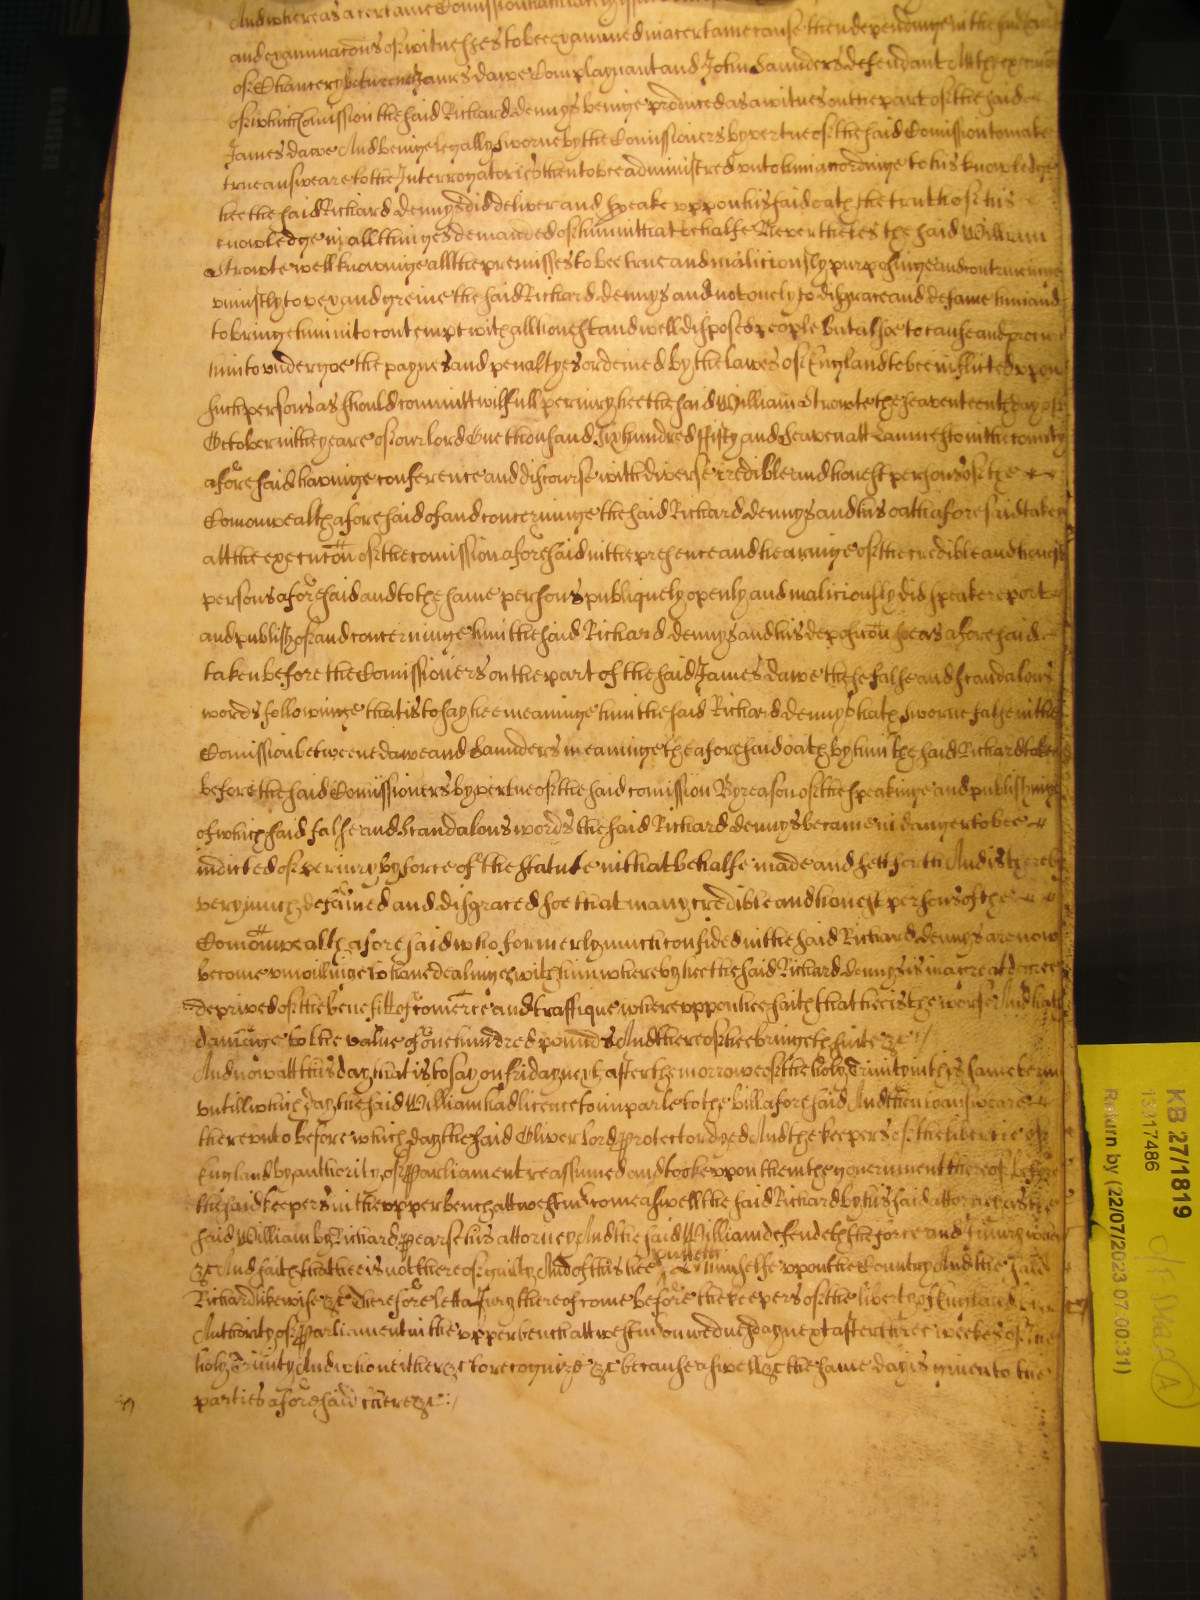 And whereas a certaine Comission
and examinacons of witnesses to bee examined in a certaine cause then dependinge in the
of Chancery betweene James dawe Complaynant and John Saunders defendant Att the
of which Comission the said Richard dennys beinge produced as a witnes on the part of the said
James dawe And beinge legally sworne by the Comissioners by vertue of the said Comission to make
true answeare to the Interrogatories then to bee administred unto him accordinge to his knowledge
hee the said Richard dennys did deliver and speake uppon his said oath the truth of his
knowledge in all thinges demanded of him in that behalfe Neverthelesse the said William
Strowte well knowinge all the premisses to bee true and maliciously purposinge and contriveinge
uniustly to vex and greive the said Richard dennys and not onely to disgrace and defame him and
to bringe him into contempt with all honest and well disposed people but alsoe to cause and
him to undergoe the paynes and penaltyes ordeined by the lawes of England to bee inflicted upon
such persons as should committ wilfull periury hee the said William Strowte the seaventeenth day of
October in the yeare of our lord One thousand six hundred fifty and Seaven att Launceston in the county
aforesaid haveinge conference and discourse with diverse credible and honest persons of the
Comonwealth aforesaid of and concerninge the said Richard dennys and his oath aforesaid taken
att the execucon of the comission aforesaid in the presence and hearinge of the credible and honest
persons aforesaid and to the same persons publiquely openly and maliciously did speake report
and publish of and concerninge him the said Richard dennys and his deposicon aforesaid
taken before the Comissioners on the part of the said James dawe these false and scandalous
words followinge that is to say hee meaninge him the said Richard dennys hath sworne false in the
Comission betweene dawe and Saunders meaninge the aforesaid oath by him the said Richard taken
before the said Comissioners by vertue of the said comission By reason of the speakinge and publishinge
of which said false and scandalous words the said Richard dennys became in danger to bee
indicted of periury by force of the statute in that behalfe made and sett forth And is thereby
very much defamed and disgraced soe that many credible and honest persons of the
Comonwealth aforesaid who formerly much confided in the said Richard dennys are now
become unwillinge to have dealinge with him whereby hee the said Richard dennys is in a great degree
deprived of the benefitt of comerce and traffique whereuppon hee saith that hee is the worse And hath
damage to the value of one hundred pounds And thereof hee bringeth suite &c
And now att this day that is to say on friday next after the morrow of the holy Trinity in this same terme
untill which day the said William had licence to imparle to the bill aforesaid And then to answeare
thereunto before which day the said Oliver lord Protector dyed And the keepers of the libertie of
England by authority of Parliament reassumed and tooke uppon them the government thereof before
the said keepers in the upper bench att westm come aswell the said Richard by his said attorney as the
said William by Richard Pearse his attorney And the said William defendeth the force and Iniury when
&c And saith that hee is not thereof guilty And of this hee putteth himselfe uppon the Country And the said
Richard likewise &c Therefore lett a Jury thereof come before the keepers of the liberty of England by
Authority of Parliament in the upper bench att westm on wednesday next after three weekes of the
holy Trinity And who neither &c to recognize &c because aswell &c the same day is given to the
parties aforesaid there &c
KB 27/1819
13317486
Return by (22/07/2023 07:00:31)